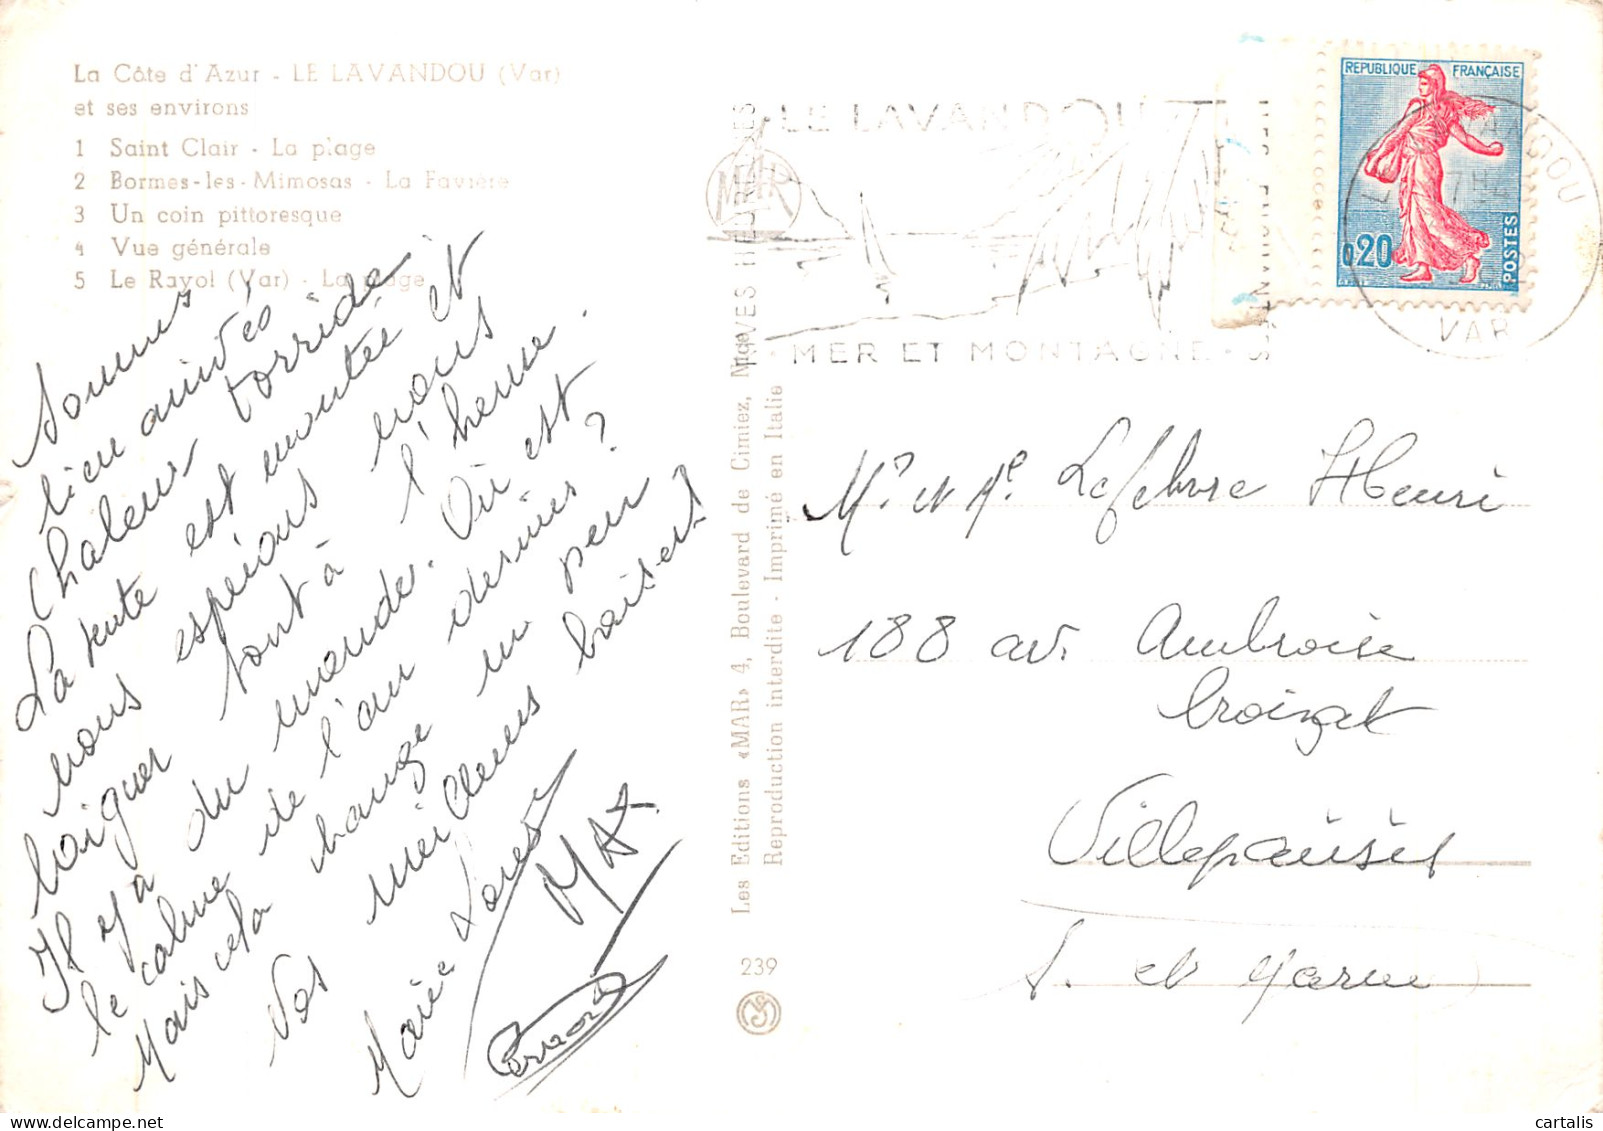 La Côte d'Azur - LE LAVANDOU (Var)
et ses environs
1 Saint Clair - La plage
2 Bormes-les-Mimosas - La Favière
3 Un coin pittoresque
4 Vue générale
5 Le Rayol (Var) - La plage
Sommes
bien arrivés
Chaleur torride
La tente est montée et
nous espérons nous
baigner tout à l'heure.
Il y a du monde. Où est
le calme de l'an dernier?
Mais cela change un peu
Vos meilleurs baisers
Marie Louise
MAX
Les Editions «MAR» 4, Boulevard de Cimiez, Nice
Reproduction interdite - Imprimé en Italie
239
MAR
LE LAVANDOU
MER ET MONTAGNE
REPUBLIQUE FRANÇAISE
0,20
POSTES
LE LAVANDOU
VAR
Mr et Me Lefebvre Henri
188 av. Ambroise
Croizat
Villeparisis
S. et Marne
cartalis.fr